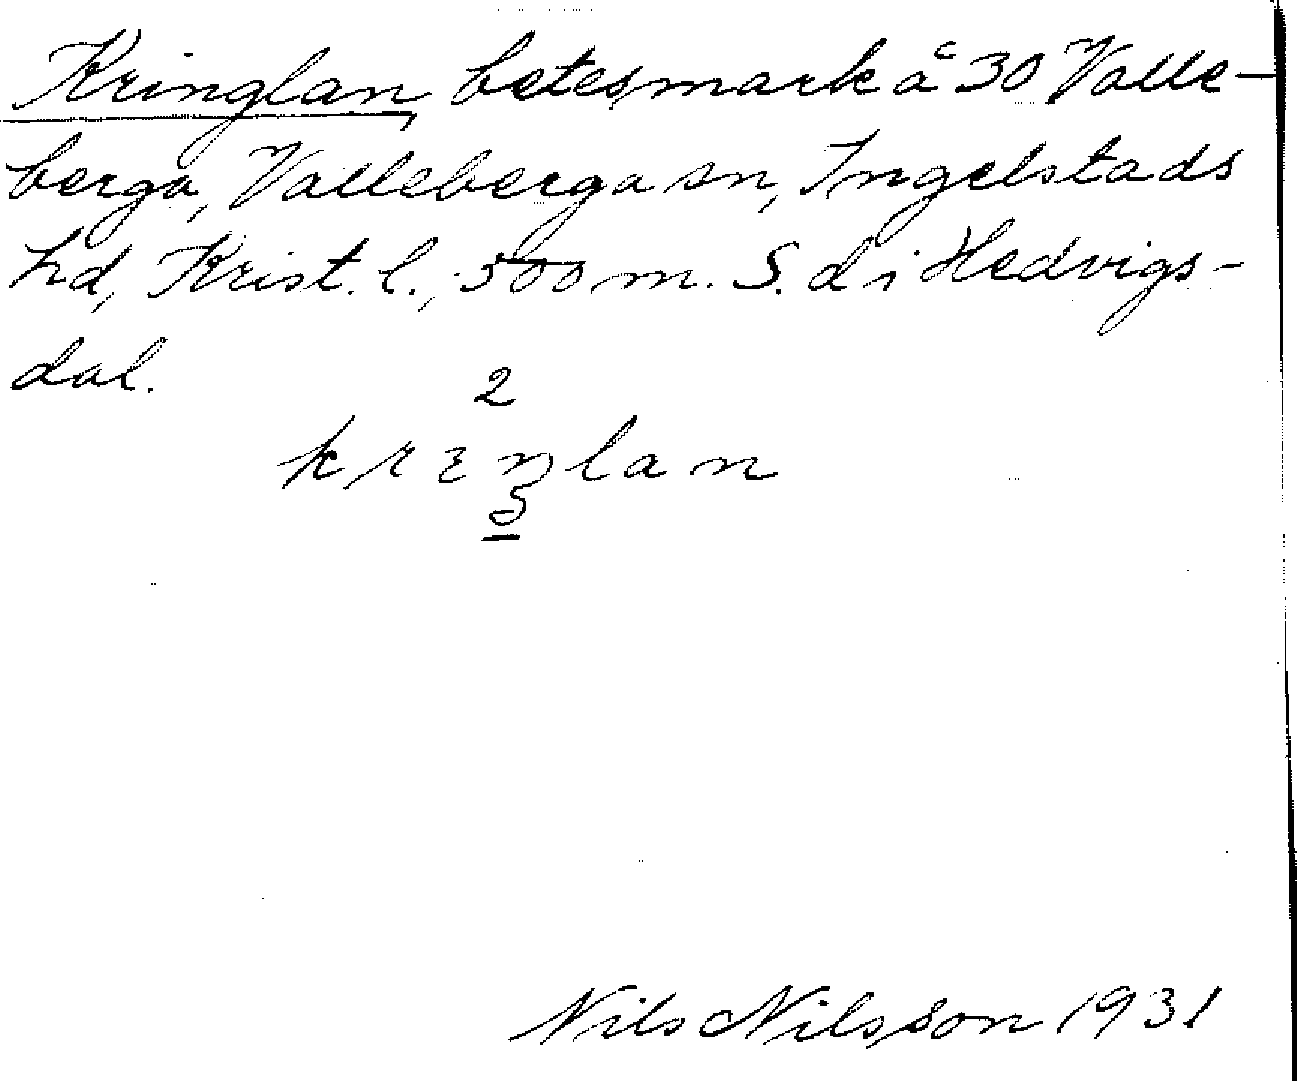 Kringlan, betesmark å 30 Valle-
berga, Valleberga sn, Ingelstads
hd, Krist. l., 500 m. S. d i Hedvigs-
dal.
2
krɛŋlan
5
Nils Nilsson 1931